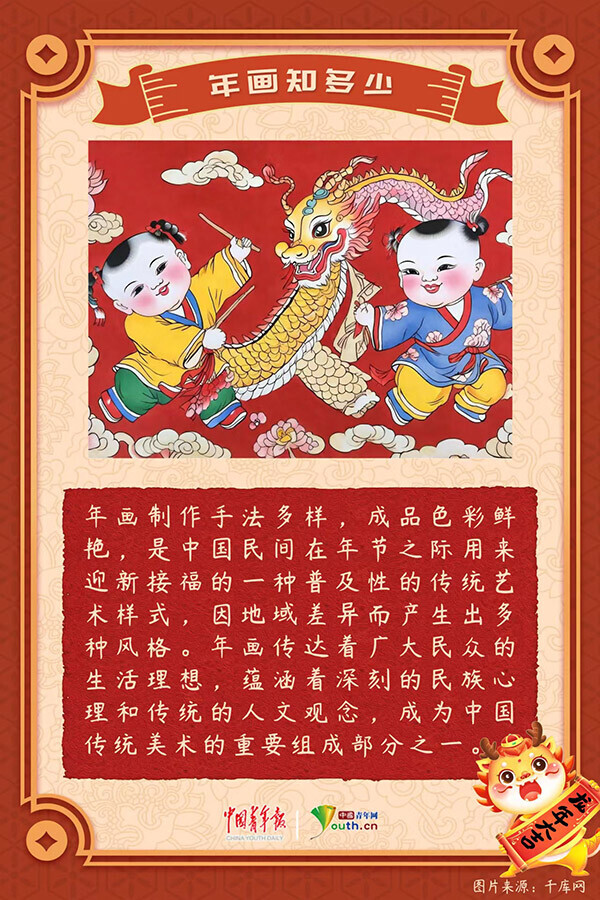 年画知多少
年画制作手法多样，成品色彩鲜
艳，是中国民间在年节之际用来
迎新接福的一种普及性的传统艺
术样式，因地域差异而产生出多
种风格。年画传达着广大民众的
生活理想，蕴涵着深刻的民族心
理和传统的人文观念，成为中国
传统美术的重要组成部分之一。
中国青年报
CHINA YOUTH DAILY
中國青年网
Youth.cn
龙年大吉
图片来源：千库网